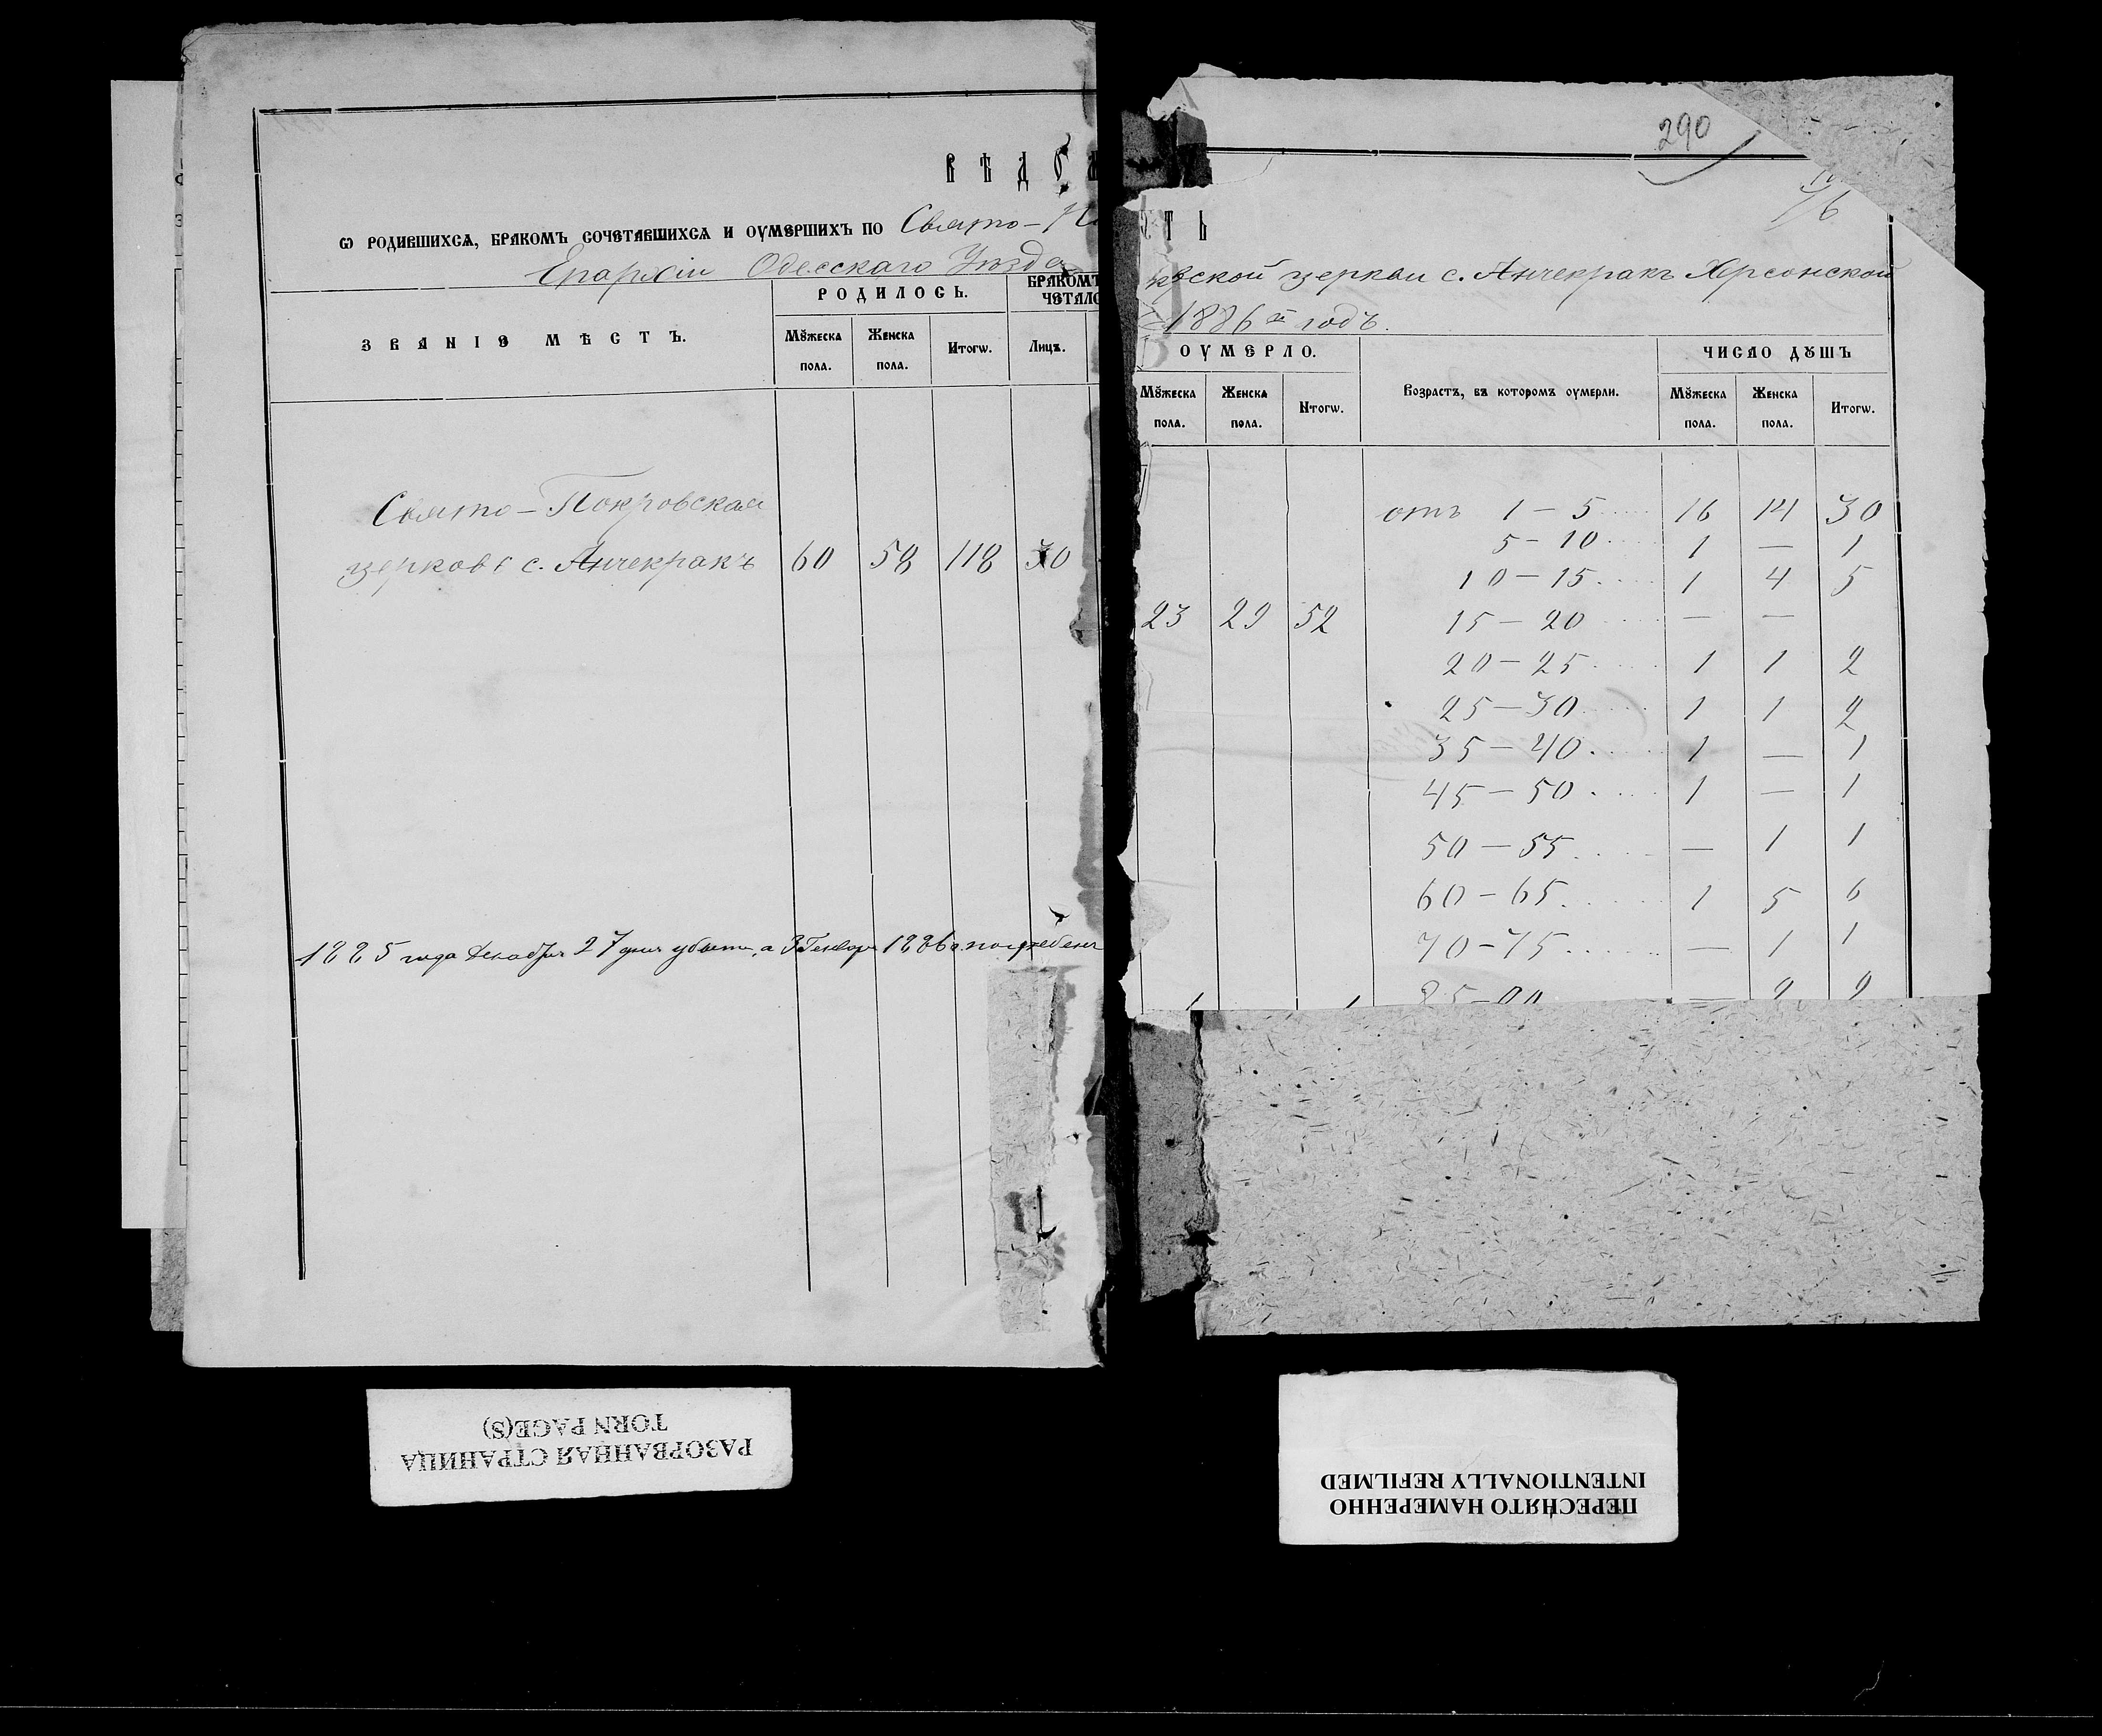 290
ВѢДО
ТЬ
Ѡ РОДИВШИХСѦ, БРАКОМЪ СОЧЕТАВШИХСѦ И ОУМЕРШИХЪ ПО Свято-
Епархіи Одесскаго Уѣзда
вской церкви с. Анчекракъ Херсонской
1886й годъ.
ЗВАНІЕ МѢСТЪ.
РОДИЛОСЬ.
БРАКОМЪ
ЧЕТАЛО
Мꙋжеска пола.
Женска пола.
Итогѡ.
Лицъ.
ОУМЕРЛО.
Возрастъ, въ которомъ оумерли.
ЧИСЛО ДꙊШЪ
Мꙋжеска пола.
Женска пола.
Итогѡ.
Мꙋжеска пола.
Женска пола.
Итогѡ.
Свято-Покровская
церковь с. Анчекракъ 60 58 118 30
1885 года Декабря 27 дня убитъ, а 3 Генваря 1886 г. погребенъ
23 29 52
отъ 1 — 5 16 14 30
5 — 10 1 — 1
10 — 15 1 4 5
15 — 20 — —
20 — 25 1 1 2
25 — 30 1 1 2
35 — 40 1 — 1
45 — 50 1 — 1
50 — 55 — 1 1
60 — 65 1 5 6
70 — 75 — 1 1
РАЗОРВАННАЯ СТРАНИЦА
TORN PAGE(S)
ПЕРЕСНЯТО НАМЕРЕННО
INTENTIONALLY REFILMED